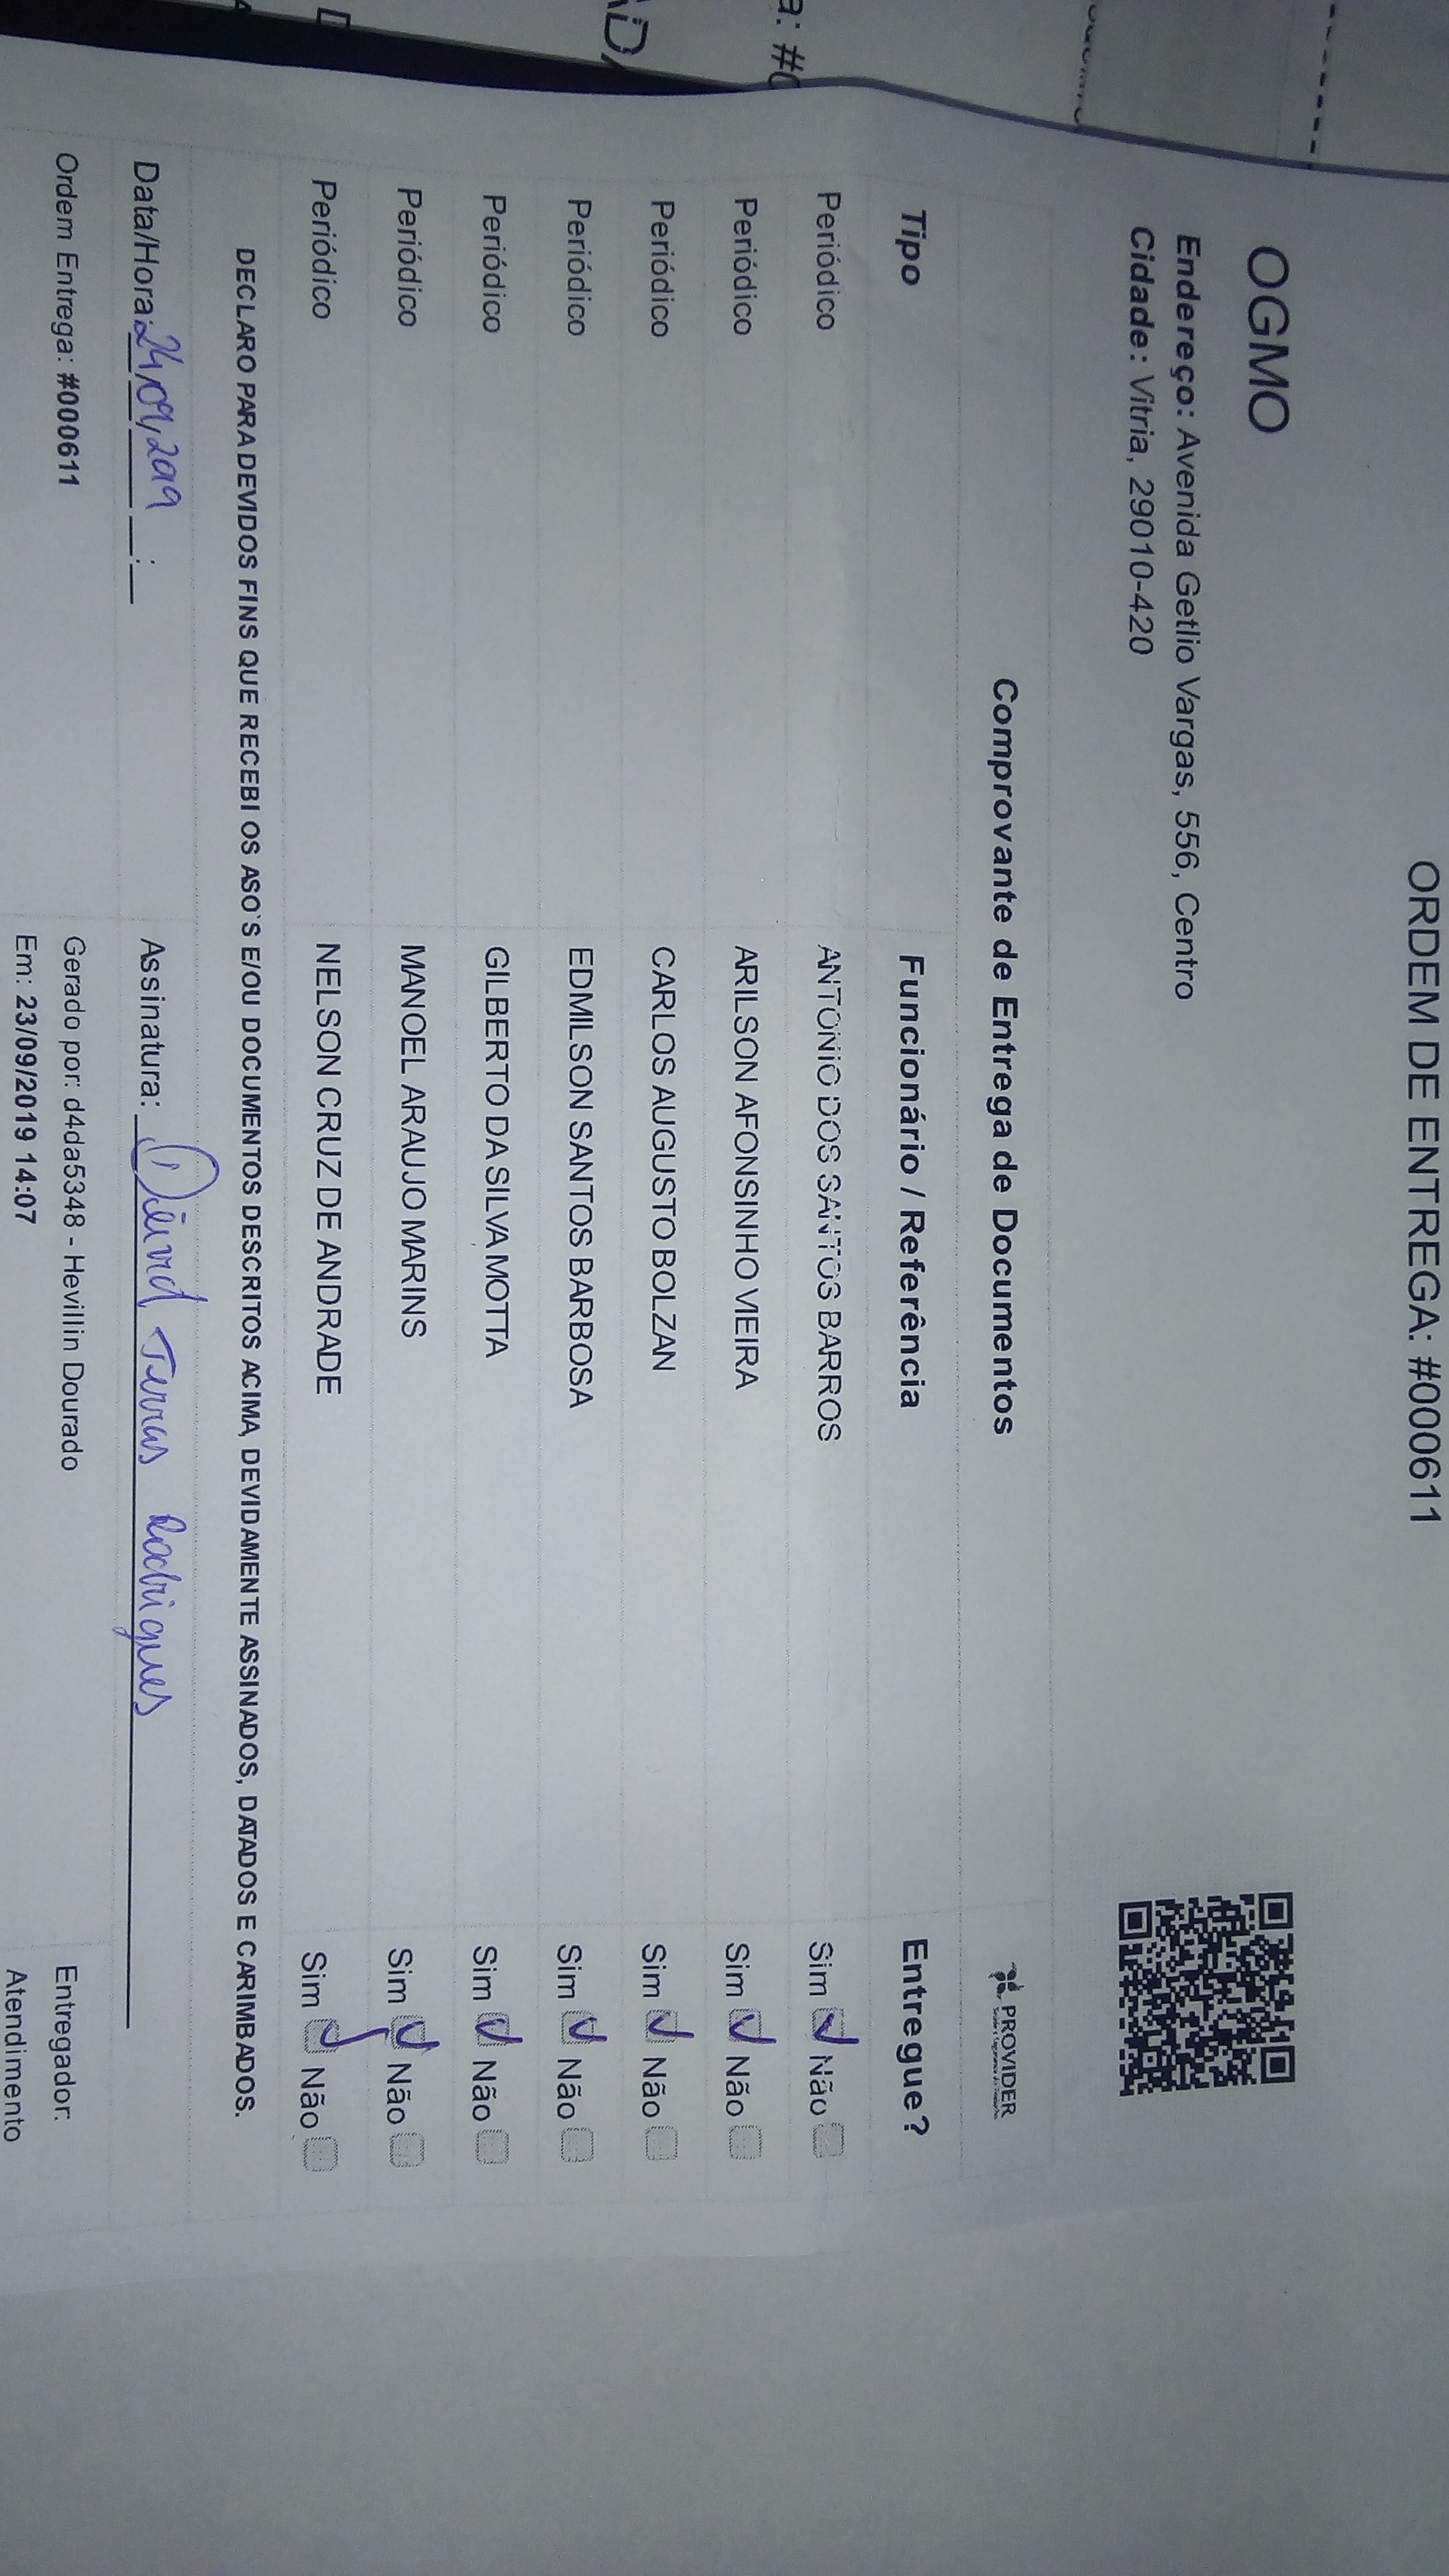 ORDEM DE ENTREGA: #000611
OGMO
Endereço: Avenida Getlio Vargas, 556, Centro
Cidade: Vitria, 29010-420
Comprovante de Entrega de Documentos PROVIDER
Tipo Funcionário / Referência Entregue?
Periódico ANTONIO DOS SANTOS BARROS Sim Não
Periódico ARILSON AFONSINHO VIEIRA Sim Não
Periódico CARLOS AUGUSTO BOLZAN Sim Não
Periódico EDMILSON SANTOS BARBOSA Sim Não
Periódico GILBERTO DA SILVA MOTTA Sim Não
Periódico MANOEL ARAUJO MARINS Sim Não
Periódico NELSON CRUZ DE ANDRADE Sim Não
DECLARO PARA DEVIDOS FINS QUE RECEBI OS ASO'S E/OU DOCUMENTOS DESCRITOS ACIMA, DEVIDAMENTE ASSINADOS, DATADOS E CARIMBADOS.
Data/Hora: 24,09,2019 __:__ Assinatura: Rodrigues
Ordem Entrega: #000611 Gerado por: d4da5348 - Hevillin Dourado Entregador:
Em: 23/09/2019 14:07 Atendimento